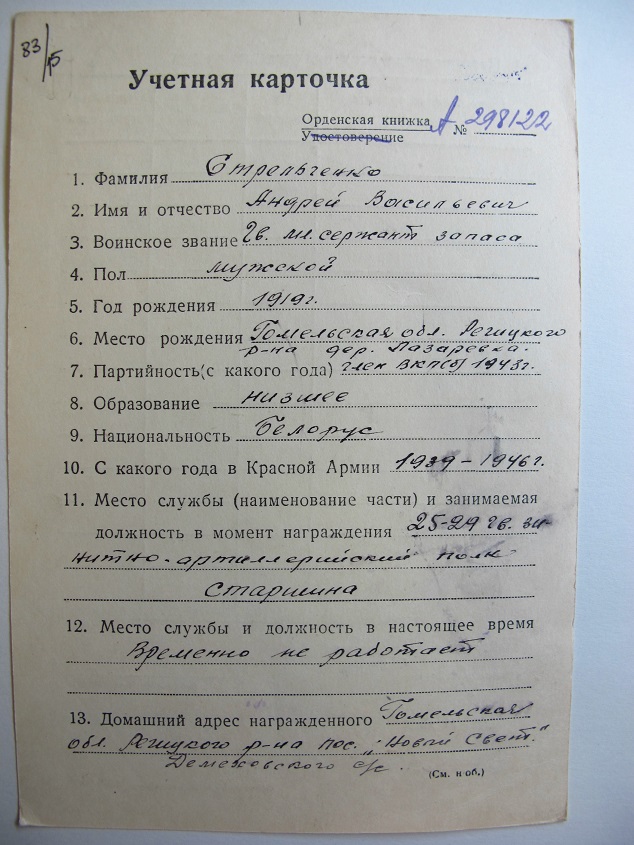 83/15
Учетная карточка
Орденская книжка А № 298122
Удостоверение
1. Фамилия Стрельченко
2. Имя и отчество Андрей Васильевич
3. Воинское звание Гв. мл. сержант запаса
4. Пол мужской
5. Год рождения 1919г.
6. Место рождения Гомельская обл. Речицкого
р-на дер. Лазаревка.
7. Партийность(с какого года) член ВКП(б) 1943г.
8. Образование низшее
9. Национальность Белорус
10. С какого года в Красной Армии 1939-1946г.
11. Место службы (наименование части) и занимаемая
должность в момент награждения 25-29 гв. зе-
нитно-артиллерийский полк
Старшина
12. Место службы и должность в настоящее время
Временно не работает
13. Домашний адрес награжденного Гомельская
обл. Речицкого р-на пос. „Новый Свет."
Демеховского с/с.
(См. н об.)